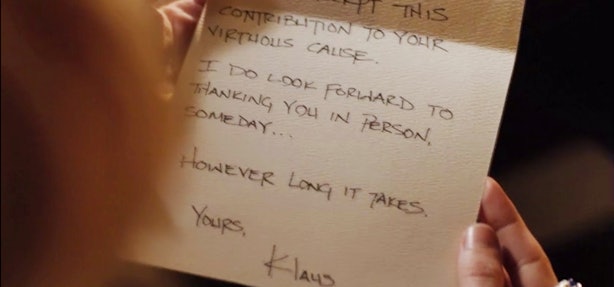 THIS
CONTRIBUTION TO YOUR
VIRTUOUS CAUSE.
I DO LOOK FORWARD TO
THANKING YOU IN PERSON,
SOMEDAY...
HOWEVER LONG IT TAKES.
YOURS,
Klaus